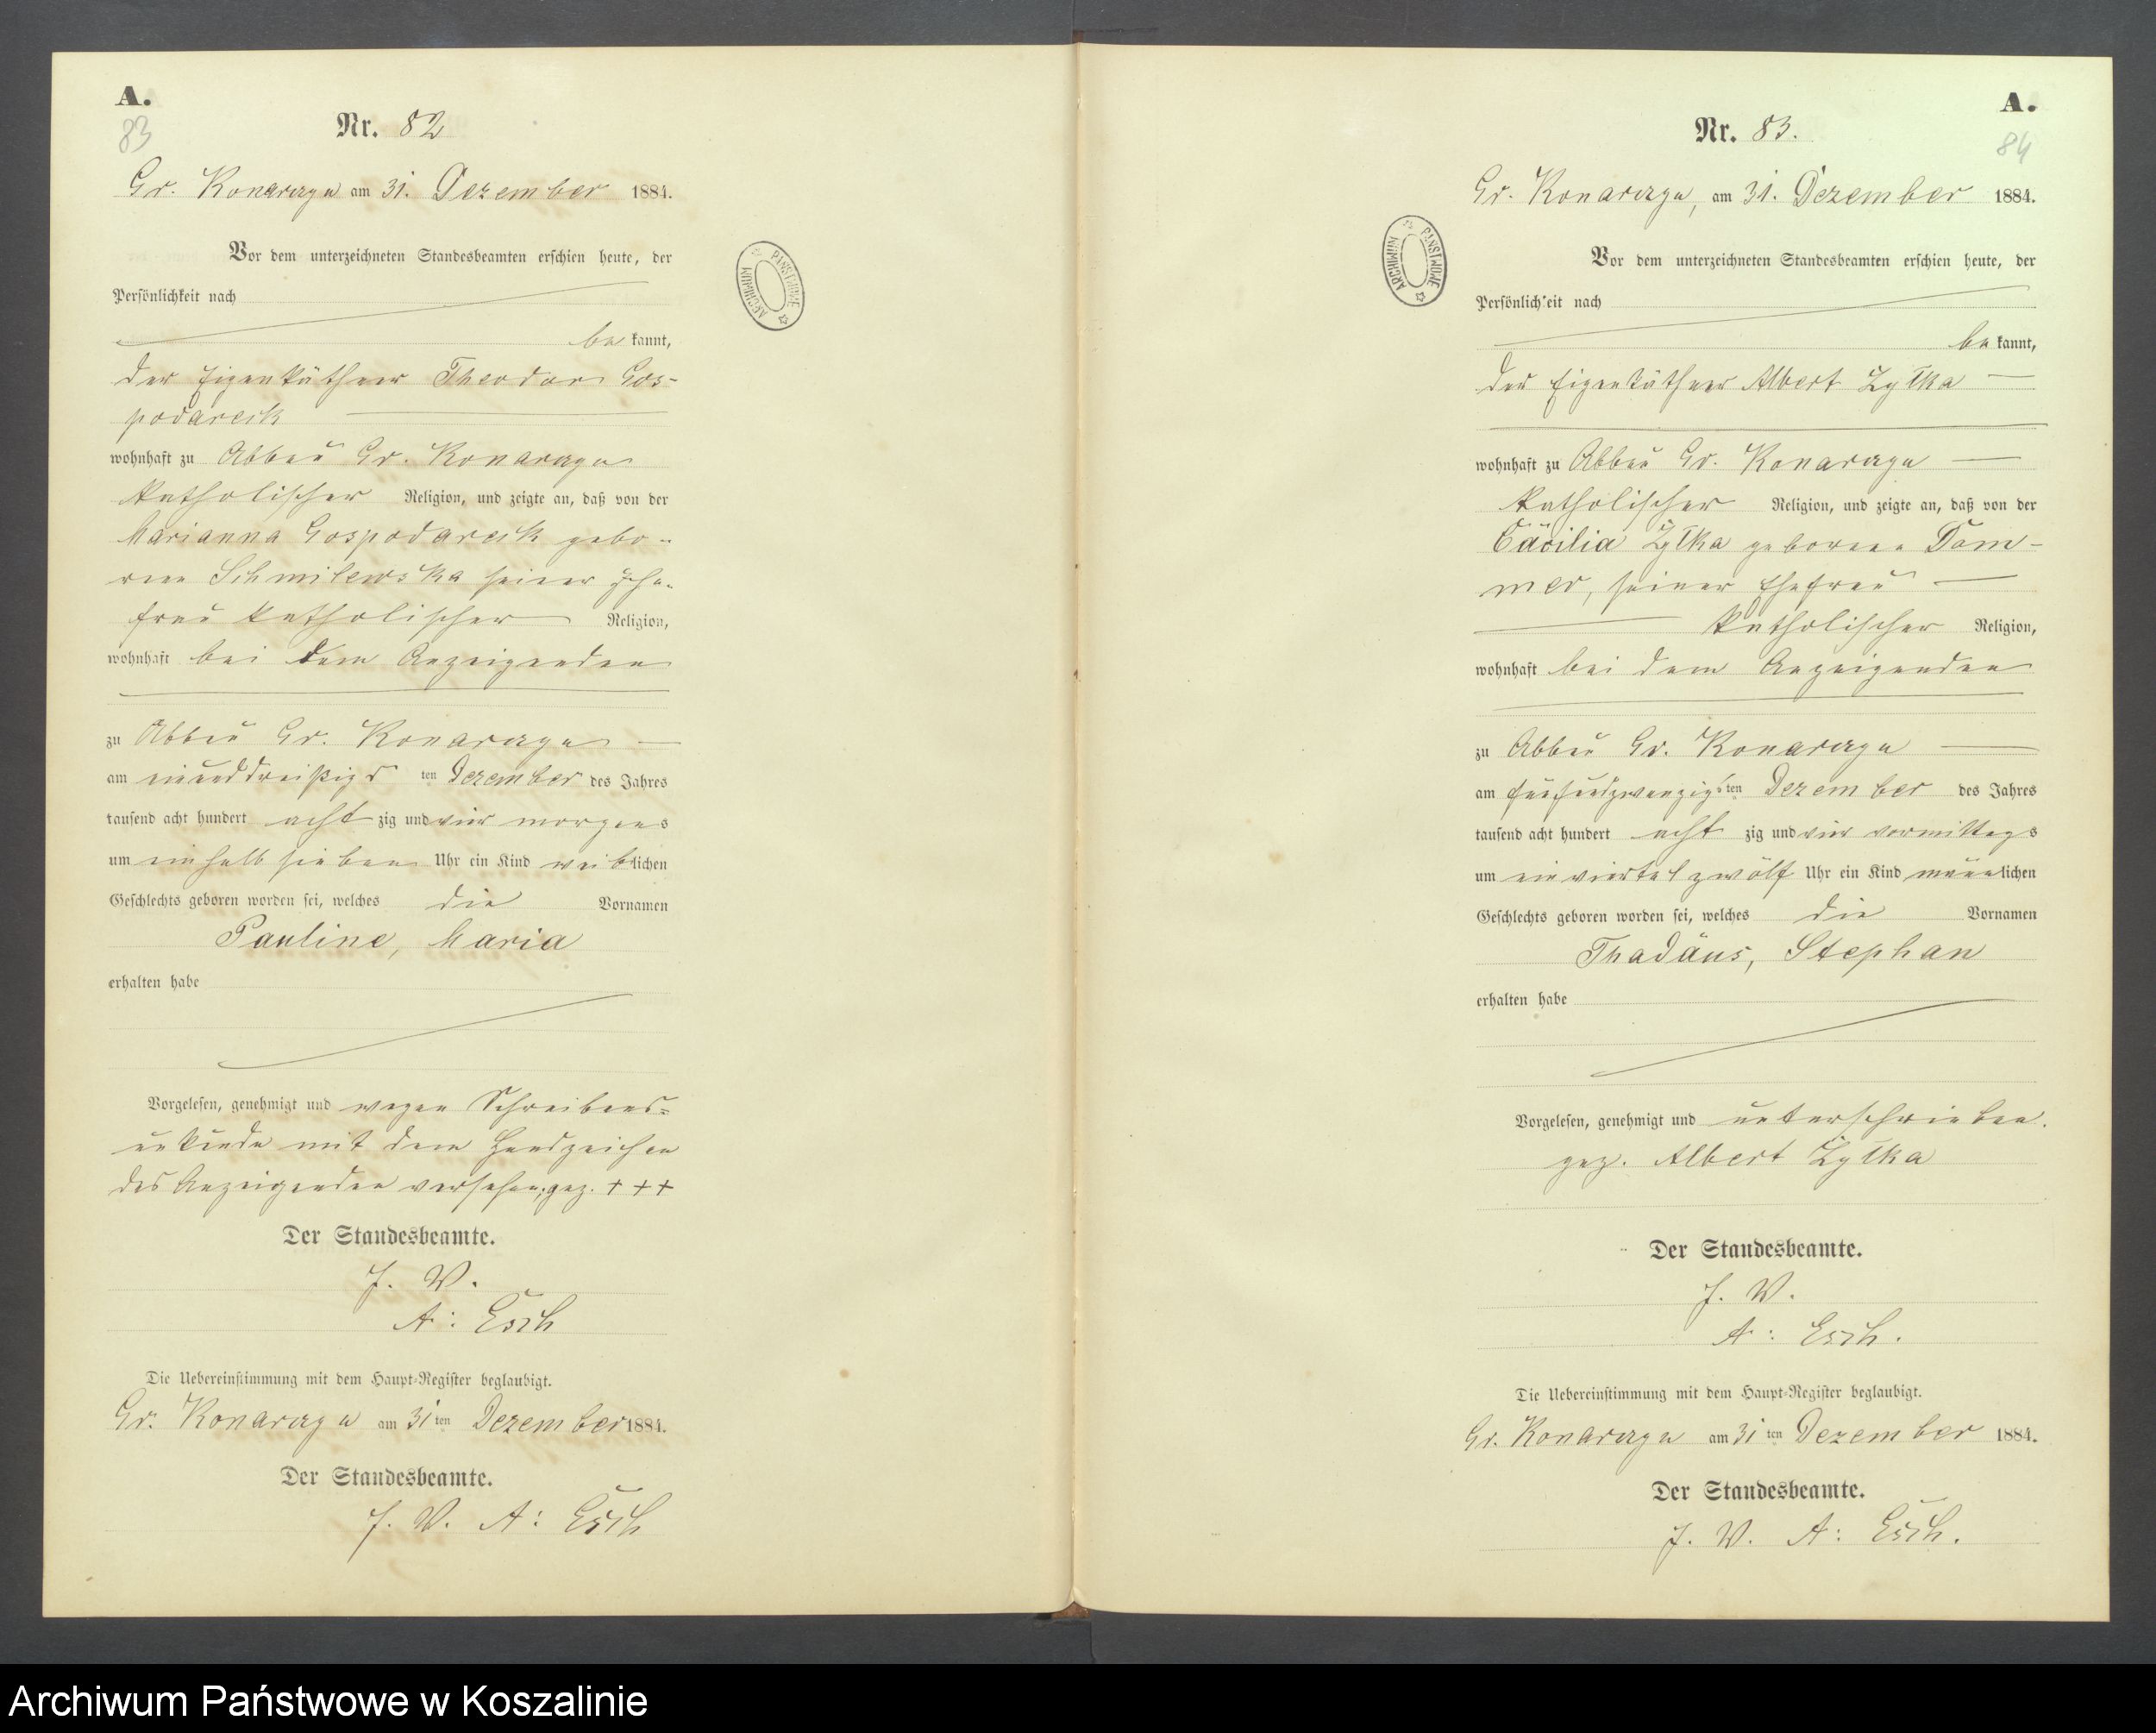 A.
83
Nr. 82
Gr. Konarczyn am 31. Dezember 1884.
Vor dem unterzeichneten Standesbeamten erschien heute, der
Persönlichkeit nach
be kannt,
der Eigenkäthner Theodor Gos-
podarek
wohnhaft zu Abbau Gr. Konarczyn
katholischer Religion, und zeigte an, daß von der
Marianna Gospodarek gebo-
rene Schmilewska seiner Ehe-
frau katholischer Religion,
wohnhaft bei dem Anzeigenden
zu Abbau Gr. Konarczyn
am einunddreißigs ten Dezember des Jahres
tausend acht hundert acht zig und vier morgens
um einhalb sieben Uhr ein Kind weib lichen
Geschlechts geboren worden sei, welches die Vornamen
Pauline, Maria
erhalten habe
Vorgelesen, genehmigt und wegen Schreibens-
unkunde mit dem Handzeichen
des Anzeigenden versehen, gez. +++
Der Standesbeamte.
J. V.
A: Esch
Die Uebereinstimmung mit dem Haupt-Register beglaubigt.
Gr. Konarczyn am 31 ten Dezember 1884.
Der Standesbeamte.
J. V. A: Esch
ARCHIWUM PAŃSTWOWE
A.
84
Nr. 83.
Gr. Konarczyn, am 31. Dezember 1884.
Vor dem unterzeichneten Standesbeamten erschien heute, der
Persönlichkeit nach
be kannt,
der Eigenkäthner Albert Zytka
wohnhaft zu Abbau Gr. Konarczyn
katholischer Religion, und zeigte an, daß von der
Cäcilia Zytka geborene Dom-
mer, seiner Ehefrau
katholischer Religion,
wohnhaft bei dem Anzeigenden
zu Abbau Gr. Konarczyn
am fünfundzwanzigs ten Dezember des Jahres
tausend acht hundert acht zig und vier vormittags
um ein viertel zwölf Uhr ein Kind männlichen
Geschlechts geboren worden sei, welches die Vornamen
Thadäus, Stephan
erhalten habe
Vorgelesen, genehmigt und unterschrieben.
gez. Albert Zytka
Der Standesbeamte.
J. V.
A: Esch.
Die Uebereinstimmung mit dem Haupt-Register beglaubigt.
Gr. Konarczyn am 31 ten Dezember 1884.
Der Standesbeamte.
J. V. A: Esch.
ARCHIWUM PAŃSTWOWE
Archiwum Państwowe w Koszalinie